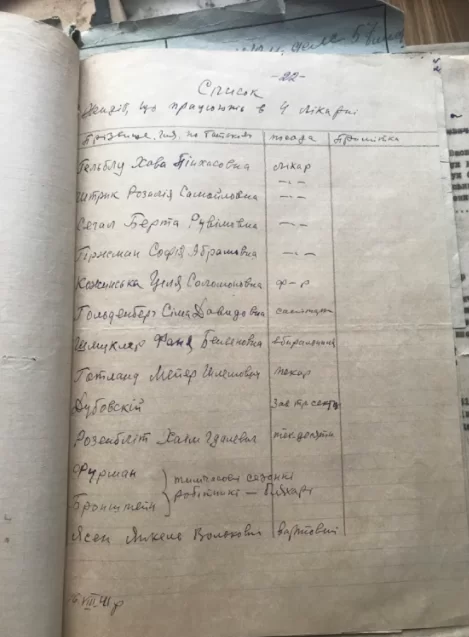 -22-
Список
Жидів, що працюють в 4 лікарні
Прізвище, ім'я, по батькові посада Примітка
Гельблу Хава Пінхасовна лікар
Штрик Розалія Самойловна -"-
Сегал Берта Рувімовна -"-
Гіржман Софія Абрамовна -"-
Кожинська Циля Соломоновна ф-р
Гольденберг Сіма Давидовна санітарк
Шмуклер Фаня Бенеловна вбиральниця
Готланд Меїер Шлемович пекар
Дубовскій
Розенбліт Хаїм
Фурман тимчасові сезонні
Бронштейн робітники — Пікарі
Ясен Анкель Волькович вартовий
VIII 41 р